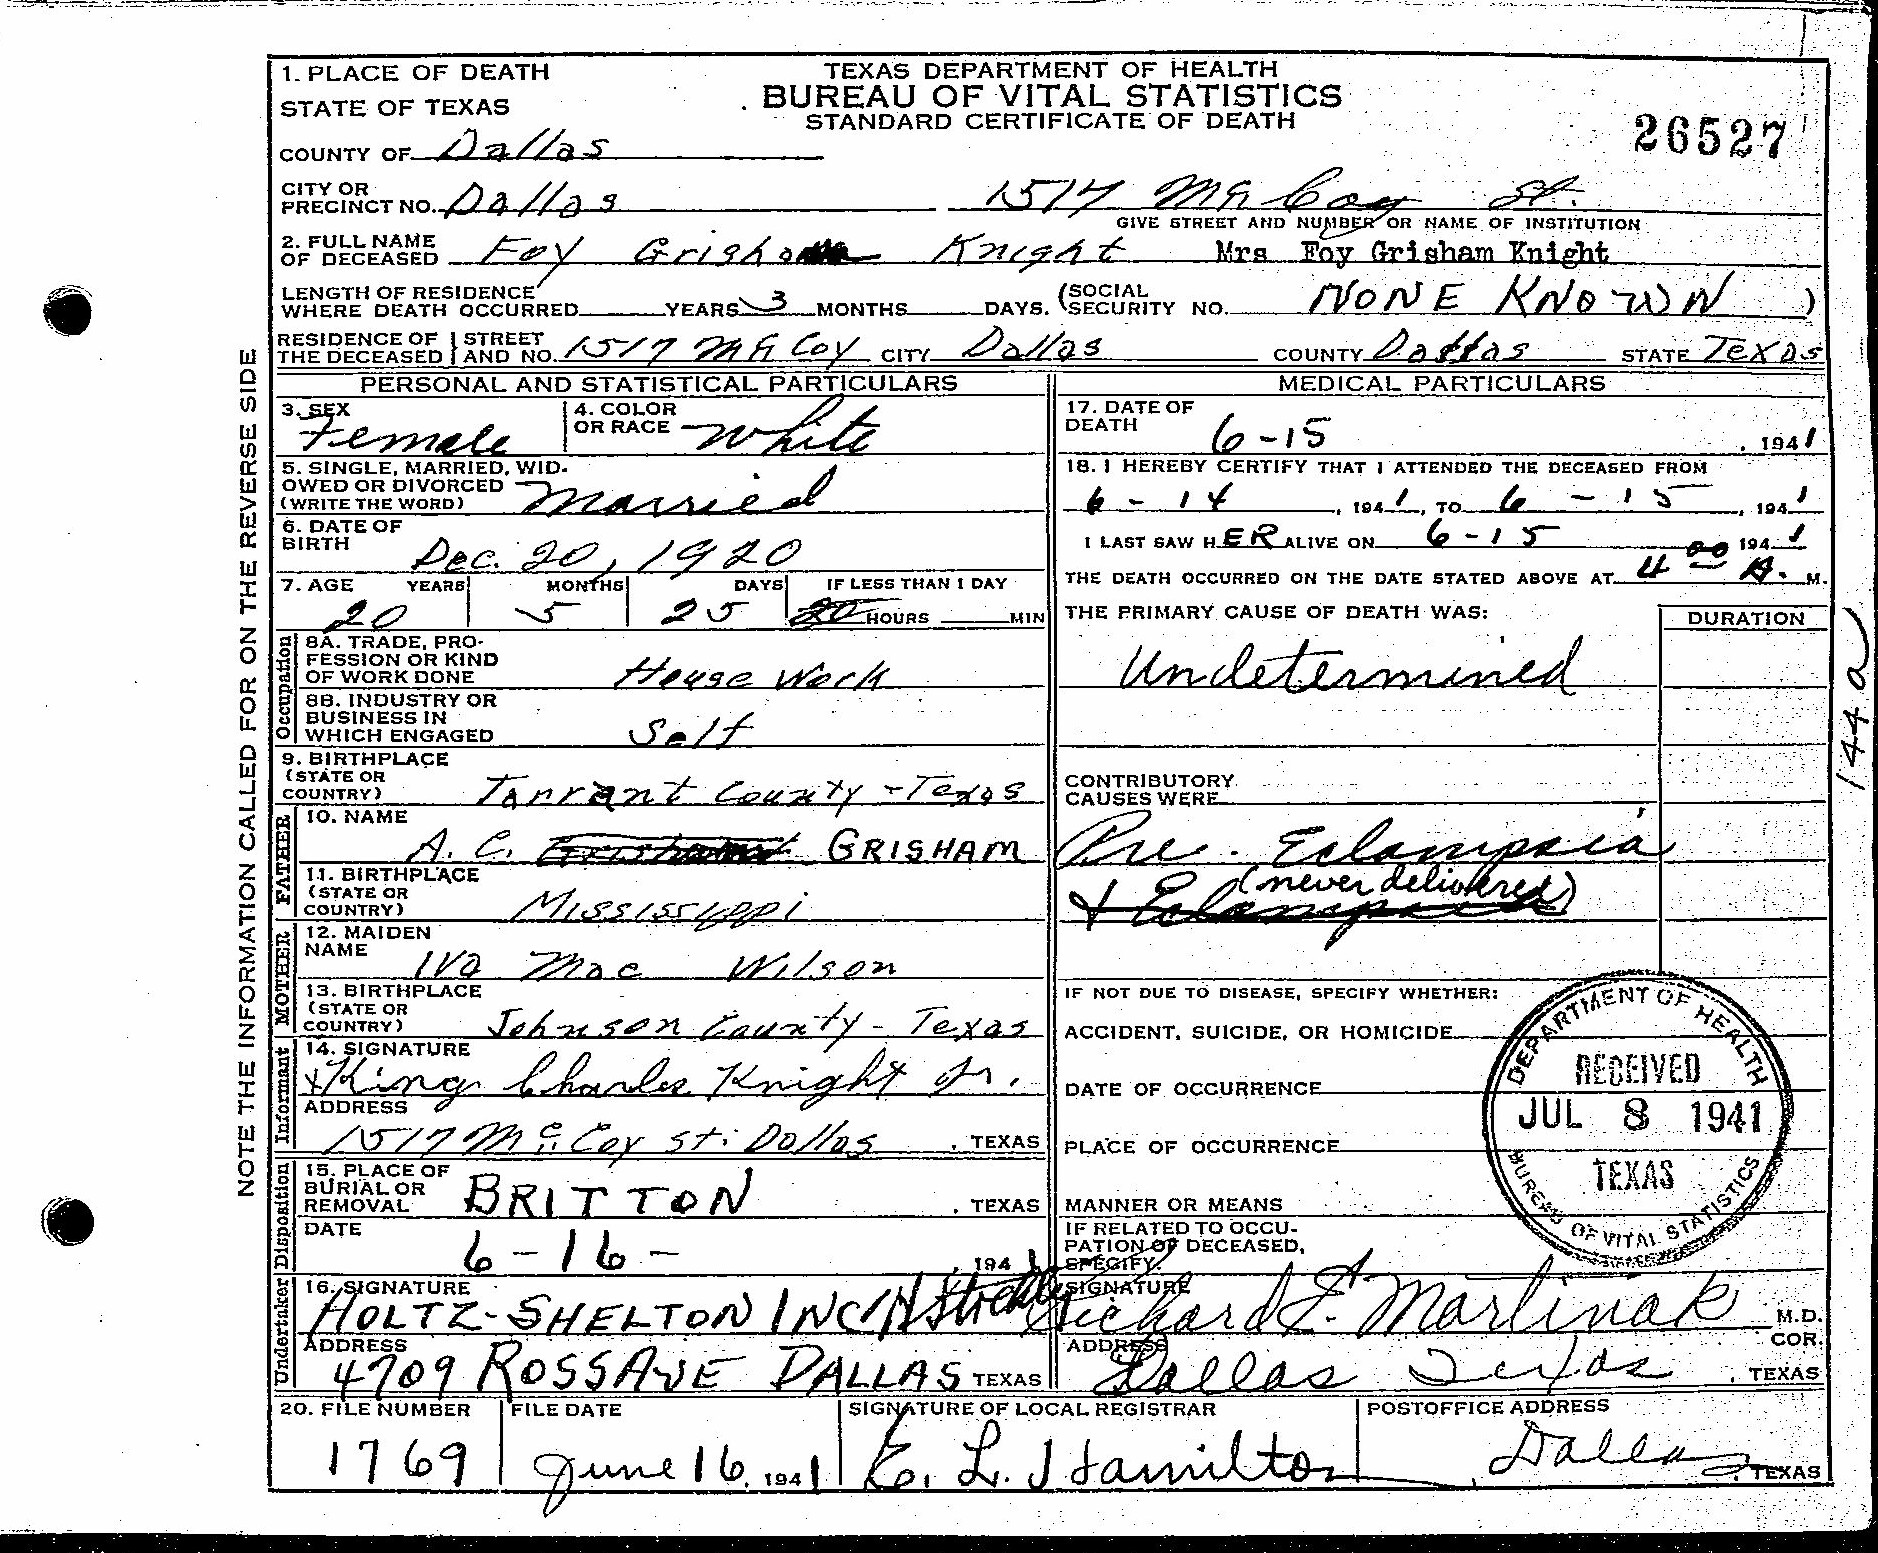 1. PLACE OF DEATH
STATE OF TEXAS
TEXAS DEPARTMENT OF HEALTH
BUREAU OF VITAL STATISTICS
STANDARD CERTIFICATE OF DEATH
26527
COUNTY OF Dallas
CITY OR PRECINCT NO. Dallas 1517 McCoy St.
GIVE STREET AND NUMBER OR NAME OF INSTITUTION
2. FULL NAME OF DECEASED Foy Grisham Knight Mrs Foy Grisham Knight
LENGTH OF RESIDENCE WHERE DEATH OCCURRED YEARS 3 MONTHS DAYS. (SOCIAL SECURITY NO. NONE KNOWN )
RESIDENCE OF THE DECEASED STREET AND NO. 1517 McCoy CITY Dallas COUNTY Dallas STATE Texas
PERSONAL AND STATISTICAL PARTICULARS
3. SEX Female
4. COLOR OR RACE White
5. SINGLE, MARRIED, WIDOWED OR DIVORCED (WRITE THE WORD) Married
6. DATE OF BIRTH Dec. 20, 1920
7. AGE YEARS MONTHS DAYS IF LESS THAN 1 DAY
20 5 25 20 HOURS MIN
Occupation
8A. TRADE, PROFESSION OR KIND OF WORK DONE House Work
8B. INDUSTRY OR BUSINESS IN WHICH ENGAGED Self
9. BIRTHPLACE (STATE OR COUNTRY) Tarrant County - Texas
FATHER
10. NAME A. C. GRISHAM
11. BIRTHPLACE (STATE OR COUNTRY) Mississippi
MOTHER
12. MAIDEN NAME Iva Mae Wilson
13. BIRTHPLACE (STATE OR COUNTRY) Johnson County - Texas
Informant
14. SIGNATURE x King Charles Knight Jr.
ADDRESS
1517 McCoy St. Dallas, TEXAS
Disposition
15. PLACE OF BURIAL OR REMOVAL BRITTON, TEXAS
DATE
6-16- , 1941
Undertaker
16. SIGNATURE
HOLTZ-SHELTON INC
ADDRESS
4709 ROSS AVE DALLAS TEXAS
MEDICAL PARTICULARS
17. DATE OF DEATH 6-15, 1941
18. I HEREBY CERTIFY THAT I ATTENDED THE DECEASED FROM
6-14, 1941, TO 6-15, 1941
I LAST SAW HER ALIVE ON 6-15 1941
THE DEATH OCCURRED ON THE DATE STATED ABOVE AT 4 00 A. M.
THE PRIMARY CAUSE OF DEATH WAS: DURATION
Undetermined
CONTRIBUTORY CAUSES WERE
Pre. Eclampsia
(never delivered)
& Eclampsia
IF NOT DUE TO DISEASE, SPECIFY WHETHER:
ACCIDENT, SUICIDE, OR HOMICIDE
DATE OF OCCURRENCE
PLACE OF OCCURRENCE
MANNER OR MEANS
IF RELATED TO OCCUPATION OF DECEASED, SPECIFY.
SIGNATURE Richard F. Martinak M.D.
COR.
ADDRESS
Dallas Texas, TEXAS
DEPARTMENT OF HEALTH
RECEIVED
JUL 8 1941
TEXAS
BUREAU OF VITAL STATISTICS
20. FILE NUMBER FILE DATE SIGNATURE OF LOCAL REGISTRAR POSTOFFICE ADDRESS
1769 June 16, 1941 E. L. Hamilton Dallas, TEXAS
NOTE THE INFORMATION CALLED FOR ON THE REVERSE SIDE
144a